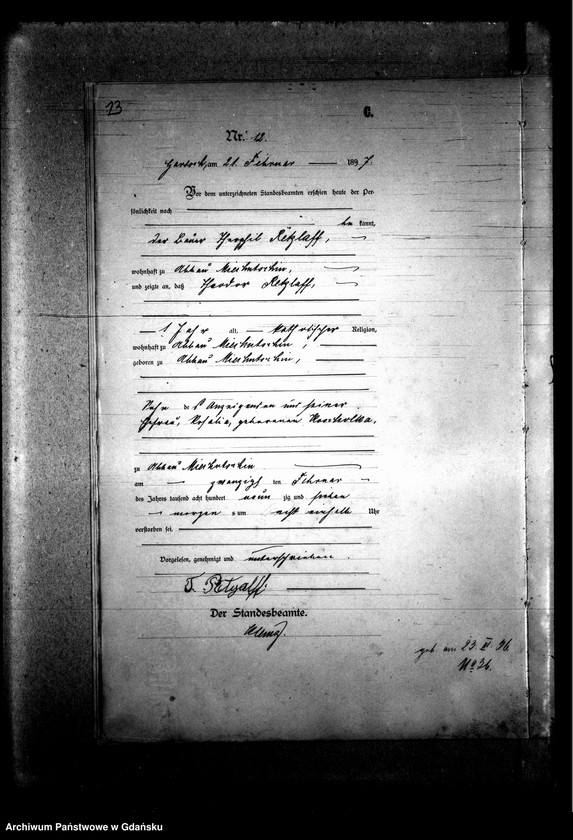 13
C.
Nr. 12.
am 21. Februar 1897.
Vor dem unterzeichneten Standesbeamten erschien heute der Per-
sönlichkeit nach
be kannt,
der Bauer Theophil Retzlaff,
wohnhaft zu Abbau
und zeigte an, daß Theodor Retzlaff,
1 Jahr alt, katholischer Religion,
wohnhaft zu Abbau
geboren zu Abbau
Sohn des Anzeigenden und seiner
Ehefrau, Rosalie, geborenen
zu Abbau
am zwanzigsten Februar
des Jahres tausend acht hundert neun zig und sieben
morgens um acht einhalb Uhr
verstorben sei.
Vorgelesen, genehmigt und unterschrieben.
T. Retzlaff.
Der Standesbeamte.
geb. am 23. 96
No 26.
Archiwum Państwowe w Gdańsku